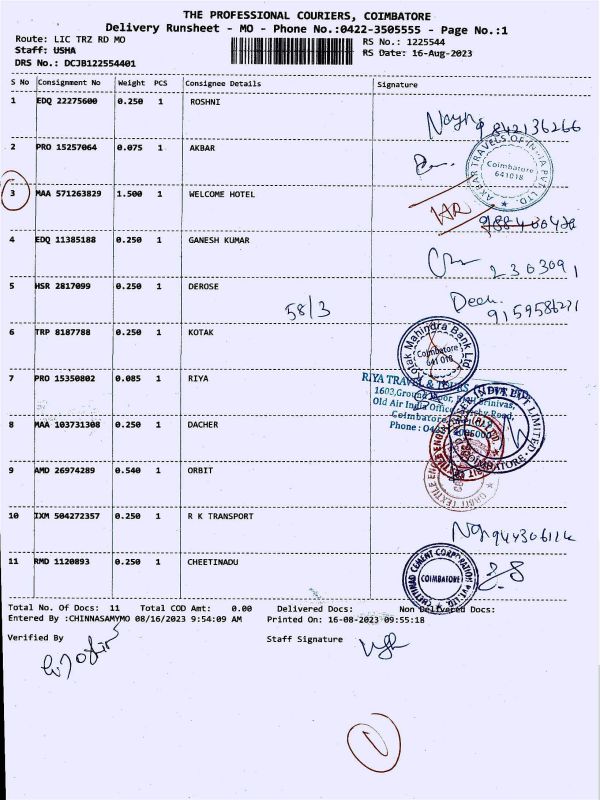 THE PROFESSIONAL COURIERS, COIMBATORE
Delivery Runsheet - MO - Phone No.:0422-3505555 - Page No.:1
Route: LIC TRZ RD MO
RS No.: 1225544
Staff: USHA
RS Date: 16-Aug-2023
DRS No.: DCJB122554401
S No Consignment No Weight PCS Consignee Details Signature
1 EDQ 22275600 0.250 1 ROSHNI
2 PRO 15257064 0.075 1 AKBAR
AKBAR TRAVELS OF INDIA PVT. LTD.
Coimbatore
641018
3 MAA 571263829 1.500 1 WELCOME HOTEL
4 EDQ 11385188 0.250 1 GANESH KUMAR
2303091
5 HSR 2817099 0.250 1 DEROSE
58/3
6 TRP 8187788 0.250 1 KOTAK
Kotak Mahindra Bank Ltd
Coimbatore
641 018
7 PRO 15350802 0.085 1 RIYA
RIYA TRAVEL & TOURS (I) PVT. LTD.
Old Air India Office
Coimbatore
8 MAA 103731308 0.250 1 DACHER
9 AMD 26974289 0.540 1 ORBIT
10 IXM 504272357 0.250 1 R K TRANSPORT
11 RMD 1120893 0.250 1 CHEETINADU
CHETTINAD CEMENT CORPORATION PVT. LTD.
COIMBATORE
Total No. Of Docs: 11 Total COD Amt: 0.00 Delivered Docs: Non Delivered Docs:
Entered By :CHINNASAMYMO 08/16/2023 9:54:09 AM Printed On: 16-08-2023 09:55:18
Verified By Staff Signature